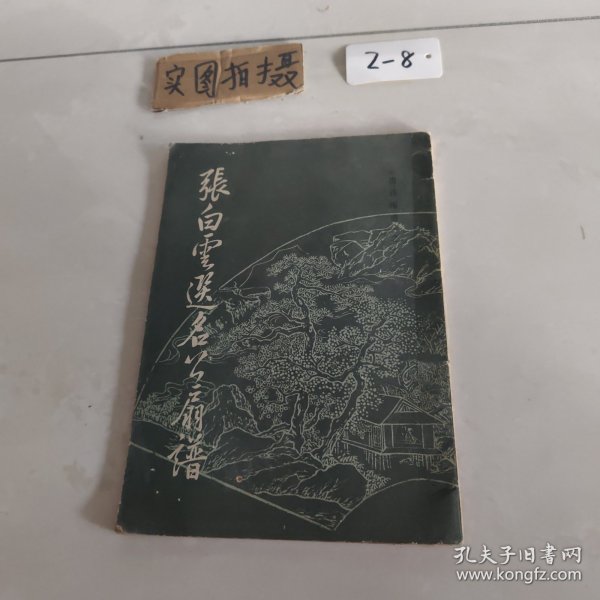 实图拍摄
Z-8.
張白雲選名公扇譜
孔夫子旧書网
www.kongfz.com